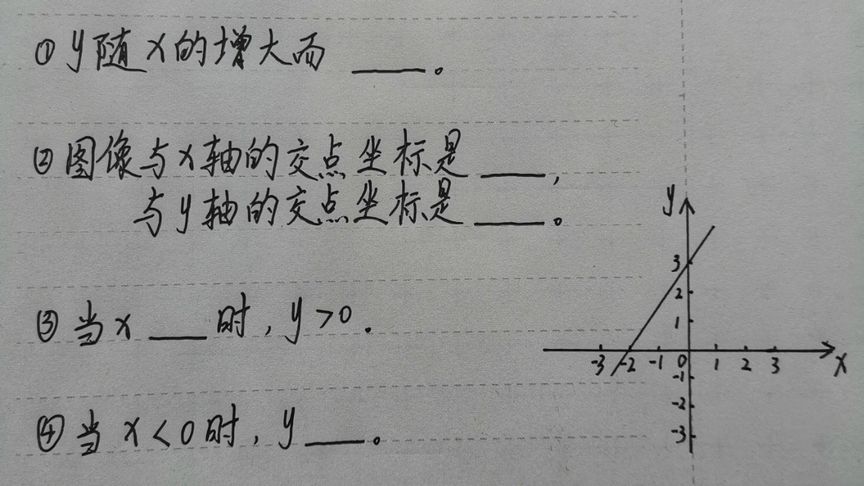 ①y随x的增大而____。
②图像与x轴的交点坐标是____,
与y轴的交点坐标是____。
③当x____时,y>0.
④当x<0时,y____。
y
3
2
1
-3 -2 -1 0 1 2 3 x
-1
-2
-3